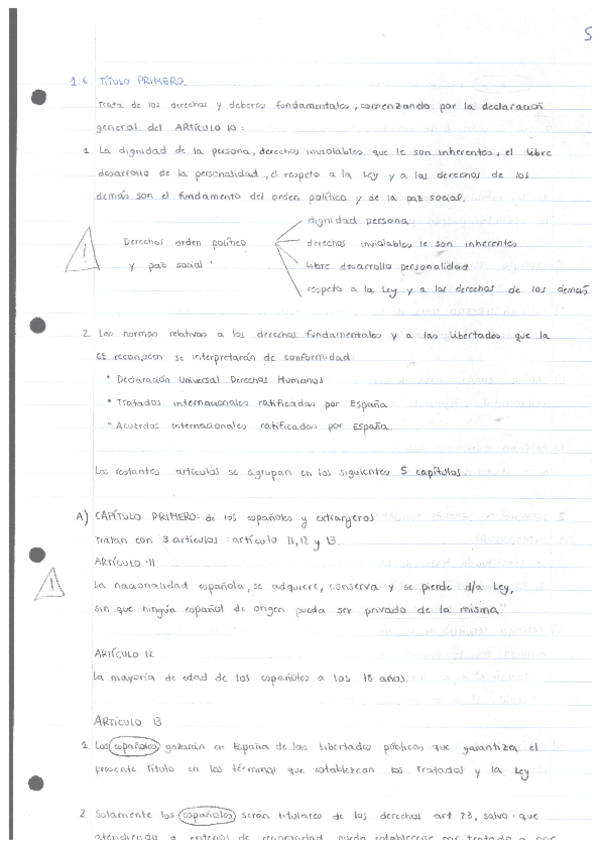 5
1.5 TÍTULO PRIMERO.
Trata de los derechos y deberes fundamentales, comenzando por la declaración
general del ARTÍCULO 10:
1. La dignidad de la persona, derechos inviolables que le son inherentes, el libre
desarrollo de la personalidad, el respeto a la Ley y a los derechos de los
demás son el fundamento del orden político y de la paz social.
dignidad persona
Derechos orden político
derechos inviolables le son inherentes
!
y paz social
libre desarrollo personalidad
respeto a la Ley y a los derechos de los demás
2. Las normas relativas a los derechos fundamentales y a las libertades que la
CE reconocen se interpretarán de conformidad:
• Declaración Universal Derechos Humanos
• Tratados internacionales ratificados por España
• Acuerdos internacionales ratificados por España.
Los restantes artículos se agrupan en los siguientes 5 capítulos.
A) CAPÍTULO PRIMERO: de los españoles y extranjeros
Tratan con 3 artículos: artículo 11, 12 y 13.
ARTÍCULO 11
!
La nacionalidad española, se adquiere, conserva y se pierde d/a Ley,
sin que ningún español de origen pueda ser privado de la misma
ARTÍCULO 12
La mayoría de edad de los españoles a los 18 años.
ARTÍCULO 13
1. Los españoles gozarán en España de las libertades públicas que garantiza el
presente Título en los términos que establezcan los Tratados y la Ley
2. Solamente los españoles serán titulares de los derechos art 23, salvo que
atendiendo a criterios de reciprocidad pueda establecerse por tratado o por